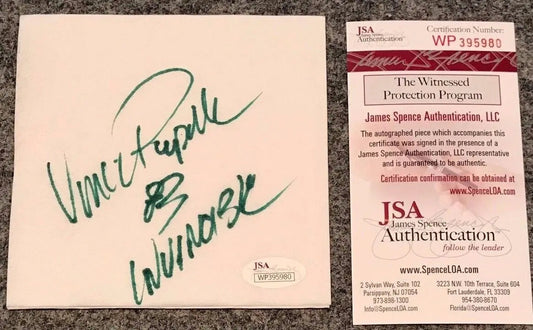 Vince Papale
83
INVINCIBLE
JSA
WP395980
JSA
Authentication™
Certification Number:
WP 395980
The Witnessed
Protection Program
James Spence Authentication, LLC
The autographed piece which accompanies this
certificate was signed in the presence of a
James Spence Authentication, LLC representative
and is guaranteed to be authentic.
Certification confirmation can be obtained at
www.SpenceLOA.com
JSA
James Spence
Authentication™
follow the leader
www.SpenceLOA.com
2 Sylvan Way, Suite 102
Parsippany, NJ 07054
973-898-1300
NJ@SpenceLOA.com
3223 N.W. 10th Terrace, Suite 604
Fort Lauderdale, FL 33309
954-380-8670
Florida@SpenceLOA.com